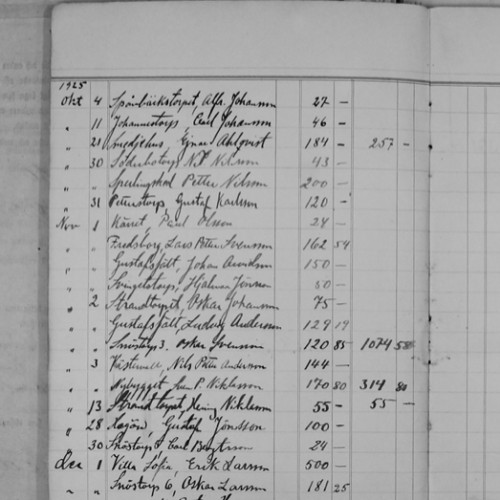 1925
Okt 4 Spånbäckstorpet, Alfr. Johansson 27 —
" 11 Johannestorp, Carl Johansson 46 —
" 21 Ahlqvist 184 — 257 —
" 30 Söderbotorp N. P. Nilsson 43 —
" " Petter Nilsson 200 —
" 31 Peterstorp Gustaf Karlsson 120 —
Nov 1 Paul Olsson 24 —
" " Fredsborg, Lars Petter Svensson 162 54
" " Gustafsfält, Johan 150 —
" " Hjalmar Jönsson 50 —
" 2 Strandtorpet, Oskar Johansson 75 —
" " Gustafsfält, Ludvig Andersson 129 19
" " Snöstorp 3. Oskar Svensson 120 85 1074 58
" 3 Nils Petter Andersson 144 —
" " Nybygget Sven P. Niklasson 170 80 314 80
" 13 Strandtorpet, Niklasson 55 — 55 —
" 28 Hagön, Gustaf Jönsson 100 —
" 30 Snöstorp 8 Carl Bengtsson 24 —
Dec 1 Villa Sofia, Erik Larsson 500 —
" " Snöstorp 6, Oskar Larsson 181 25